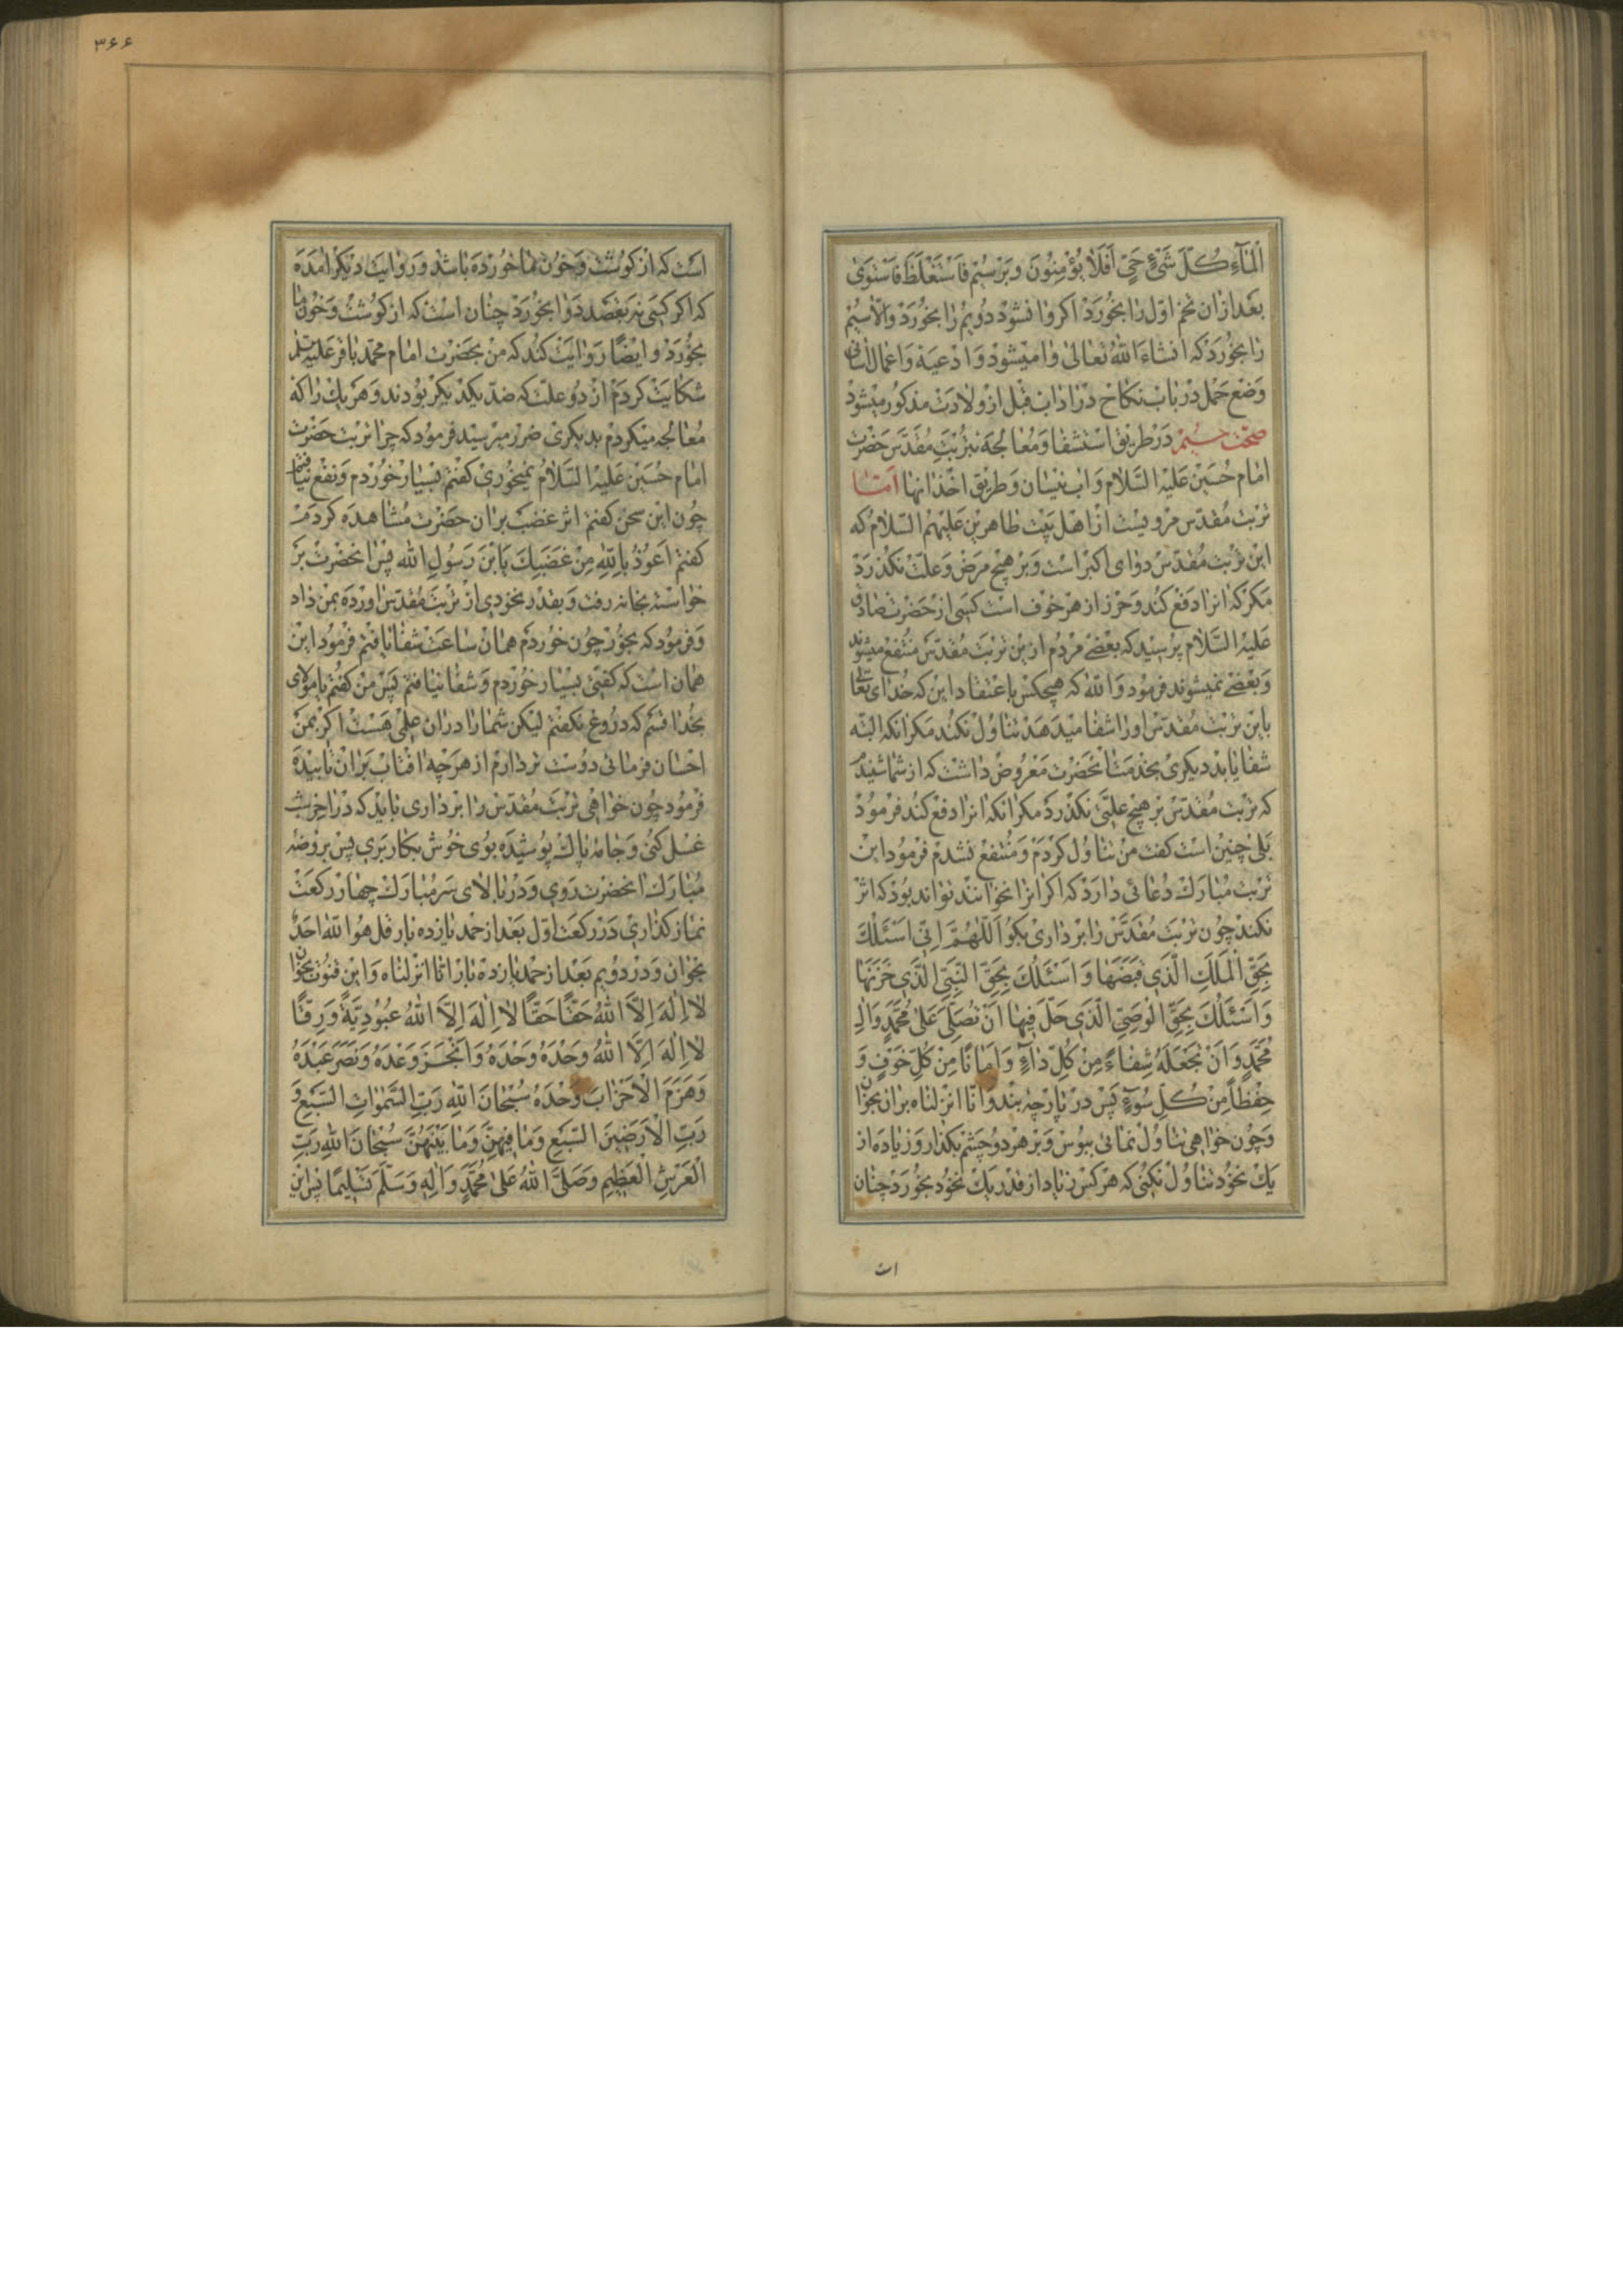 الْمَآءِ كُلَّ شَیْءٍ حَیٍّ اَفَلَا یُؤْمِنُونَ وبر سیُم فَاسْتَغْلَظَ فَاسْتَوی
بعد ازان تخم اوّل را بخورد اکر وا نشود دویم را بخورد والّا سیُم
را بخورد که انشاءَ اللهُ تعالی وا میشود وَادعیَه وَاعمال اسانی
وَضع حمل در باب نکاح در اداب قبل از ولادت مذکور میشود
صحّت سیُم در طریق استشفا وَمعالجه بتربت مقدّس حضرت
امام حسین علیه السّلام وَاب نیسان وَطریق اخذ انها امّا
تربت مقدّس مرویست از اهل بیت طاهرین علیهم السّلام که
این تربت مقدّس دوای اکبر است وَبر هیچ مرض وَعلّت نکذرد
مکر که انرا دفع کند وحرز از هر خوف است کسی از حضرت صادق
علیه السّلام پرسید که بعضی مردم ازین تربت مقدّس منتفع میشوند
وَبعضی نمیشوند فرمود وَاللّه که هیچکس با عتقاد این که خدای تعالی
باین تربت مقدّس او را شفا میدهد تناول نکند مکر انکه البتّه
شفا یابد دیکری بخدمت انحضرت معروض داشت که از شما شنیدم
که تربت مقدّس بر هیچ علّتی نکذرد مکر انکه انرا دفع کند فرمود
بلی چنین است کفت من تناول کردم وَمنتفع نشدم فرمود این
تربت مبارک دعائی دارد که اکر انرا نخوانند نواند بود که اثر
نکند چون تربت مقدّس را بر داری بکو اَللّهُمَّ اِنّی اَسْئَلُکَ
بِحَقِّ الْمَلَکِ الَّذی قَبَضَها وَ اَسْئَلُکَ بِحَقِّ النَّبِیِّ الَّذی خَزَنَها
وَ اَسْئَلُکَ بِحَقِّ الْوَصِیِّ الَّذی حَلَّ فیها اَنْ تُصَلِّیَ عَلی مُحَمَّدٍ وَالِ
مُحَمَّدٍ وَ اَنْ تَجْعَلَهُ شِفاءً مِنْ کُلِّ داءٍ وَ اَمانًا مِنْ کُلِّ خَوْفٍ وَ
حِفْظًا مِنْ کُلِّ سُوءٍ پس در پارچهٔ بند وَانّا انزلناه بران بخوان
وَچون خواهی تناول نمائی ببوس وَبر هر دو چشم بکذار وَزیاده از
یک نخود تناول نکنی که هر کس زیاد از قدر یک نخود بخورد چنان
ات
۳۶۶
است که از کوشت وَخون ما خورده باشد وَروایت دیکر امده
که اکر کسی نه بقصد دوا بخورد چنان است که از کوشت وَخون ما
بخورد وایضًا روایت کند که من بحضرت امام محمّد باقر علیه السلام
شکایت کردم از دو علّت که ضدّ یکدیکر بودند وَهر یک را که
معالجه میکردم بدیکری ضرر میرسید فرمود که چرا تربت حضرت
امام حسین علیه السّلام نمیخوری کفتم بسیار خوردم وَنفع نیافتم
چون این سخن کفتم اثر غضب بران حضرت مشاهده کردم
کفتم اَعُوذُ بِاللّهِ مِنْ غَضَبِکَ یَابْنَ رَسُولِ الله پس انحضرت بر
خواسته بخانه رفت وَبقدر نخودی از تربت مقدّس اورده بمن داد
وَفرمود که بخور چون خوردم همان ساعت شفا یافتم فرمود این
همان است که کفتی بسیار خوردم وَشفا نیافتم پس من کفتم یا مولای
بخدا قسم که دروغ نکفتم لیکن شما را دران علمی هست اکر بمن
احسان فرمائی دوست تر دارم از هرچه افتاب بران تابیده
فرمود چون خواهی تربت مقدّس را بر داری باید که در اخر شب
غسل کنی وَجامهٔ پاک پوشیده بوی خوش بکار بری پس بروضهٔ
مبارک انحضرت روی وَدر بالای سر مبارک چهار رکعت
نماز کذاری در رکعت اوّل بعد از حمد یازده بار قل هو اللّه احد
بخوان وَدر دویم بعد از حمد یازده بار انّا انزلناه وَاین قنوت بخوان
لا اِلهَ اِلَّا اللّهُ حَقًّا حَقًّا لا اِلهَ اِلَّا اللّهُ عُبُودِیَّةً وَرِقًّا
لا اِلهَ اِلَّا اللّهُ وَحْدَهُ وَحْدَهُ وَ اَنْجَزَ وَعْدَهُ وَنَصَرَ عَبْدَهُ
وَهَزَمَ الْاَحْزابَ وَحْدَهُ سُبْحانَ اللّهِ رَبِّ السَّمواتِ السَّبْعِ وَ
رَبِّ الْاَرَضینَ السَّبْعِ وَما فیهِنَّ وَما بَیْنَهُنَّ سُبْحانَ اللّهِ رَبِّ
الْعَرْشِ الْعَظیمِ وَصَلَّی اللّهُ عَلی مُحَمَّدٍ وَ الِهِ وَسَلَّمَ تَسْلیمًا پس این